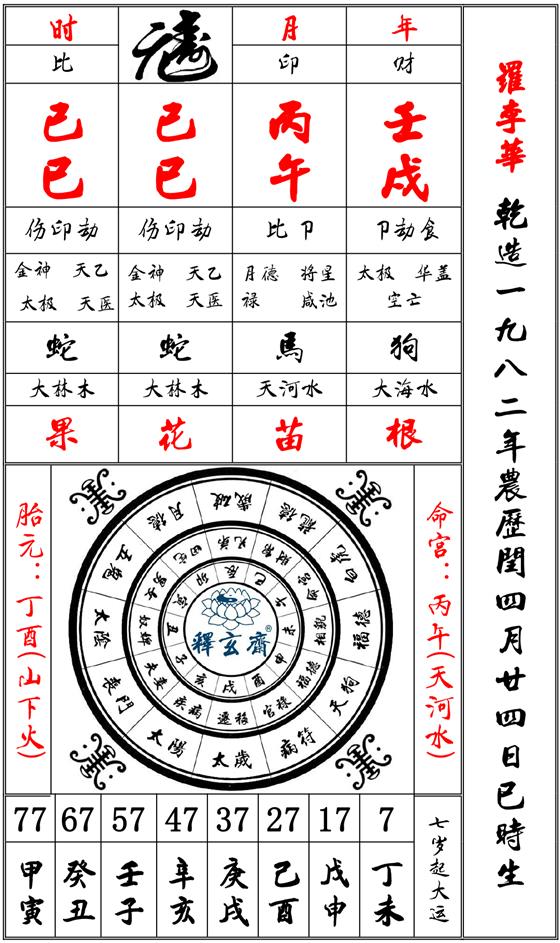 羅李華 乾造一九八二年農歷閏四月廿四日巳時生
时 元 月 年
比 印 财
己 己 丙 壬
巳 巳 午 戌
伤印劫 伤印劫 比卩 卩劫食
金神 天乙 金神 天乙 月德 将星 太极 华盖
太极 天医 太极 天医 禄 咸池 空亡
蛇 蛇 馬 狗
大林木 大林木 天河水 大海水
果 花 苗 根
命宫：丙午(天河水)
歲破 龍德 白虎 福德 天狗 病符 太歲 太陽 喪門 太陰 五鬼 月德
兄弟 財帛 命宮 相貌 福德 官禄 遷移 疾病 夫妻 奴僕 男女 田宅
辰 巳 午 未 申 酉 戌 亥 子 丑 寅 卯
釋玄齋®
胎元：丁酉(山下火)
77 67 57 47 37 27 17 7
甲寅 癸丑 壬子 辛亥 庚戌 己酉 戊申 丁未
七岁起大运